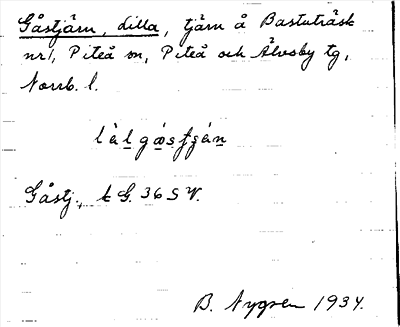 Gåstjärn, Lilla, tjärn å Bastuträsk
nr 1, Piteå sn, Piteå och Älvsby tg,
Norrb. l.
Gåstj., t G. 36 S V.
B. Nygren 1934.